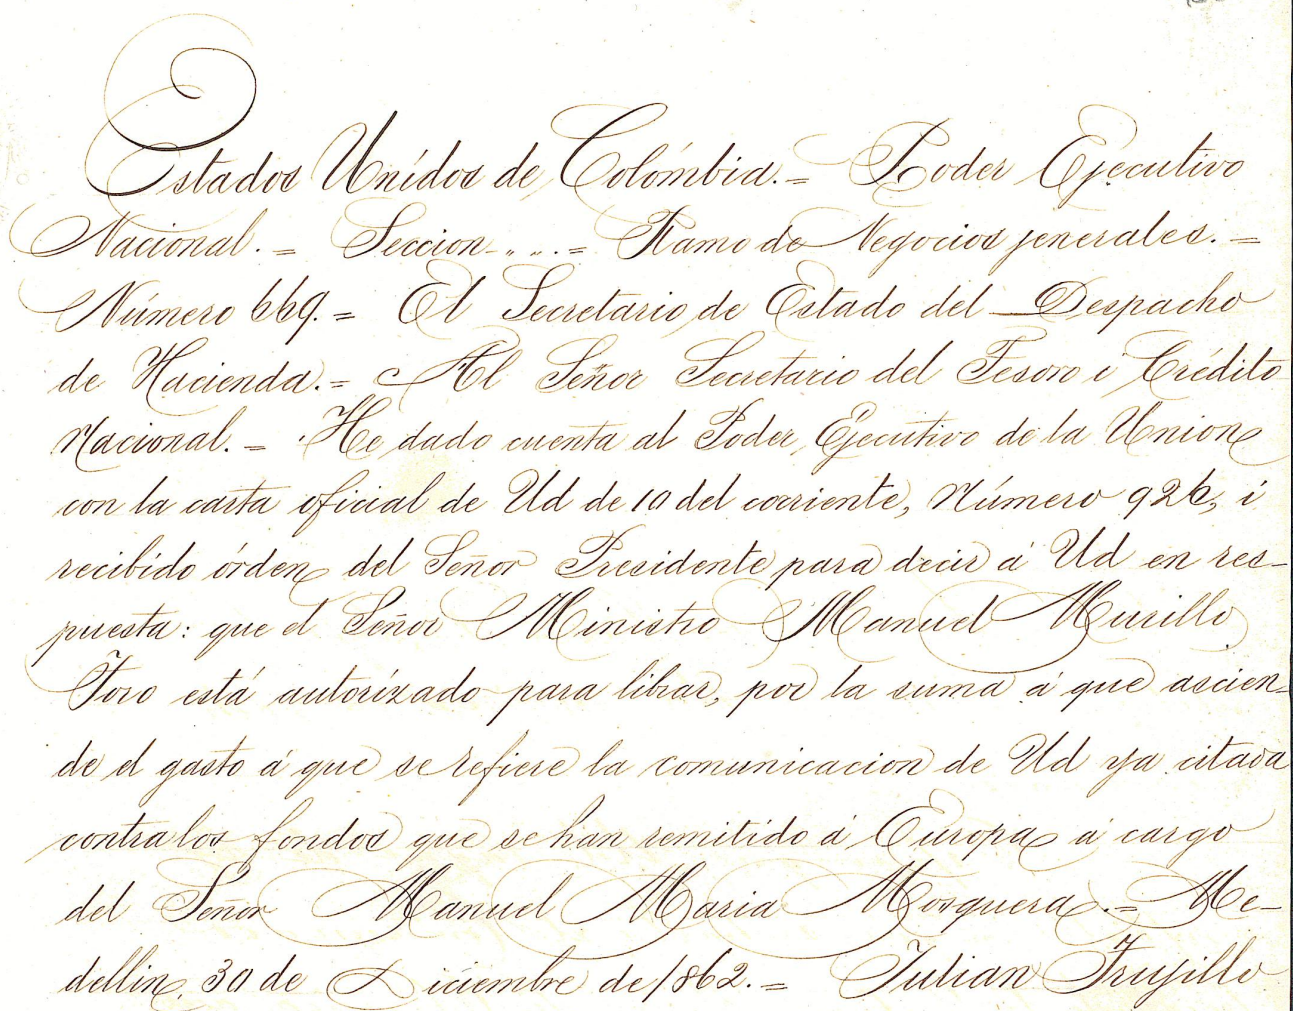 Estados Unídos de Colómbia.= Poder Ejecutivo
Nacional.= Seccion „ „ .= Ramo de Negocios jenerales.=
Número 669.= El Secretario de Estado del Despacho
de Hacienda.= Al Señor Secretario del Tesoro i Crédito
Nacional.= He dado cuenta al Poder Ejecutivo de la Union
con la carta oficial de Ud de 10 del corriente, Número 926, i
recibído órden del Señor Presidente para decir á Ud en res-
puesta: que el Señor Ministro Manuel Murillo
Toro está autorizado para librar, por la suma á que ascien-
de el gasto á que se refiere la comunicacion de Ud ya citada
contra los fondos que se han remitído á Europa á cargo
del Señor Manuel Maria Mosquera.= Me-
dellin, 30 de Diciembre de 1862.= Julian Trujillo